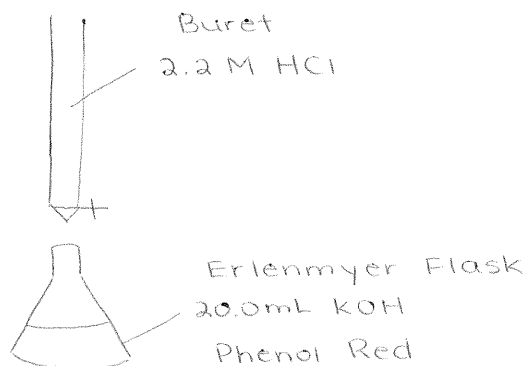 Buret
2.2 M HCl
Erlenmyer Flask
20.0mL KOH
Phenol Red